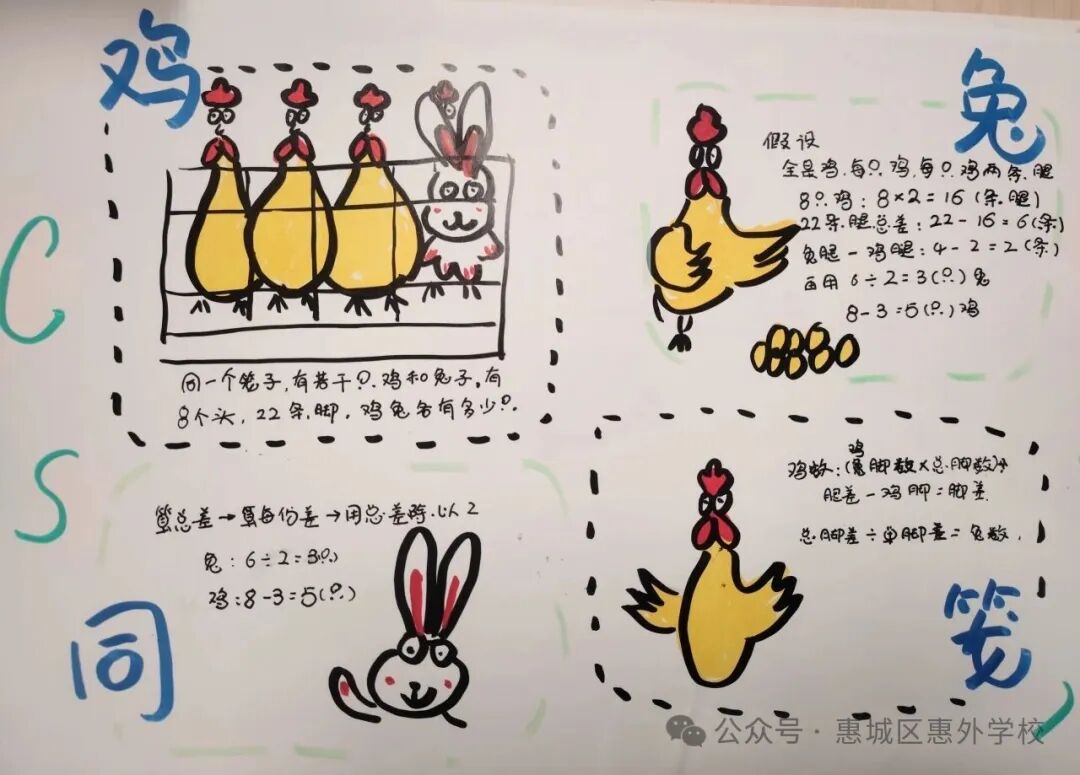 鸡
兔
C
S
同
笼
同一个笼子,有若干只鸡和兔子。有
8个头,22条脚,鸡兔各有多少只.
假设
全是鸡,每只鸡每只鸡两条腿
8只鸡:8×2=16(条腿)
22条腿总差:22-16=6(条)
兔腿-鸡腿:4-2=2(条)
再用6÷2=3(只)兔
8-3=5(只)鸡
算总差→算每份差→用总差除以2
兔:6÷2=3只)
鸡:8-3=5(只)
鸡
鸡数:(脚数×总脚数)
腿差-鸡脚=脚差
总脚差÷单脚差=兔数.
公众号·惠城区惠外学校